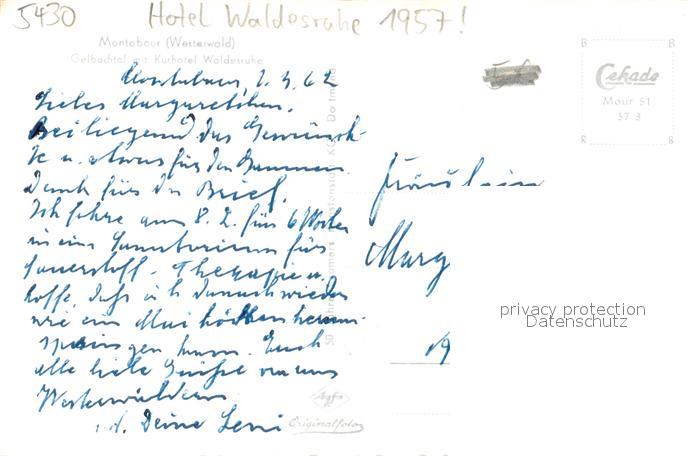 5430 Hotel Waldesruhe 1957!
Montabaur (Westerwald)
Gelbachtal mit Kurhotel Waldesruhe
Montabaur, 2.4.62
Liebes Margaretchen.
Beiliegend das Gewünsch-
te u. etwas für den Gaumen.
Dank für den Brief.
Ich fahre am 8. 2. für 6 Wochen
in ein Sanatorium für
Sauerstoff-Therapie u.
hoffe, daß ich danach wieder
wie ein Mai herum-
springen kann. Euch
alle liebe Grüße von uns
Westerwäldern
Deine Leni
Fräulein
Marg
19
Cekade
Mour 51
57 3
Agfa
Originalfoto
privacy protection
Datenschutz